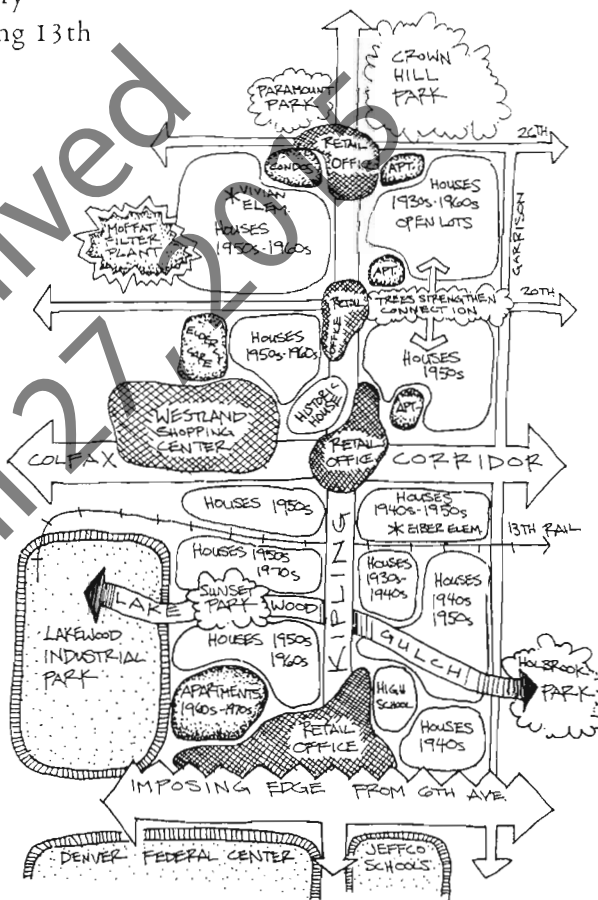 ng 13th
CROWN
HILL
PARK
PARAMOUNT
PARK
26TH
RETAIL
OFFICE
CONDOS
APT.
* VIVIAN
ELEM.
HOUSES
1950s-1960s
HOUSES
1930s-1960s
OPEN LOTS
GARRISON
MOFFAT
FILTER
PLANT
APT.
20TH
RETAIL
OFFICE
TREES STRENGTHEN
CONNECTION
ELDERLY
CARE
HOUSES
1950s-1960s
HOUSES
1950s
HISTORIC
HOUSE
APT.
WESTLAND
SHOPPING
CENTER
RETAIL
OFFICE
COLFAX CORRIDOR
HOUSES 1950s
HOUSES
1940s-1950s
* EIBER ELEM.
13TH RAIL
KIPLING
HOUSES 1950s
1970s
HOUSES
1930s-
1940s
HOUSES
1940s
1950s
SUNSET
PARK
LAKE WOOD GULCH
LAKEWOOD
INDUSTRIAL
PARK
HOUSES 1950s
1960s
HOLBROOK
PARK
APARTMENTS
1960s-1970s
HIGH
SCHOOL
RETAIL
OFFICE
HOUSES
1940s
IMPOSING EDGE FROM 6TH AVE.
DENVER FEDERAL CENTER
JEFFCO
SCHOOLS
ived
27, 2015